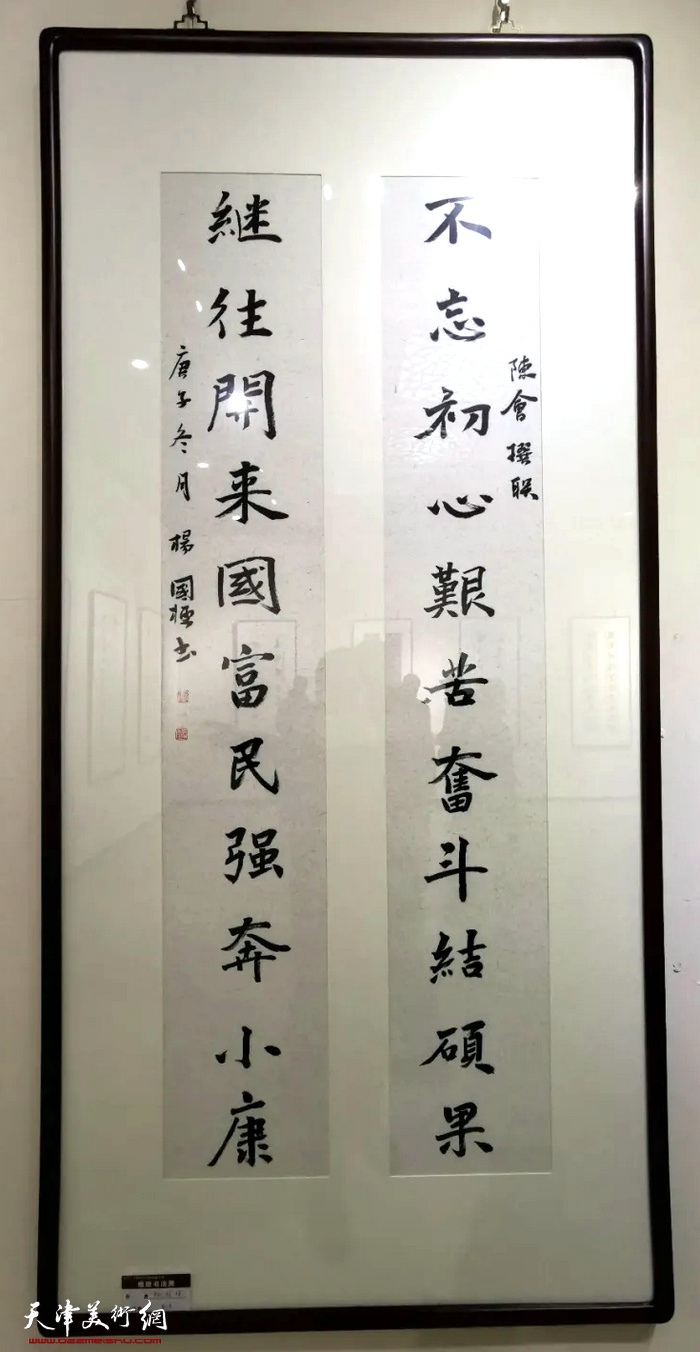 不忘初心艱苦奮斗結碩果
陳會撰联
継往開来國富民强奔小康
庚子冬月楊國極书
天津美術網
www.022meishu.com